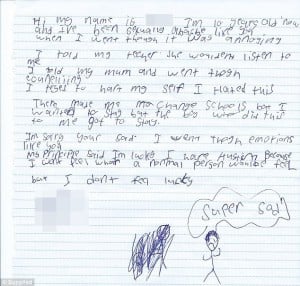 Hi my name is Im 10 years old now
and ive been sexually attacked like you
when I went though it was annoying
I told my teacher she wouldent listen to
me
I told my mum and went thogh
counselling
I tried to hurt my self I Hated this
Then made me change schools but I
wanted to stay but the boy who did this
to me got to stay.
Im sorry your sad I went thogh emotions
like you
my principle said Im lucky I have Autism Because
I dont feel what a normal person would feel
but I don't feel lucky
super sad